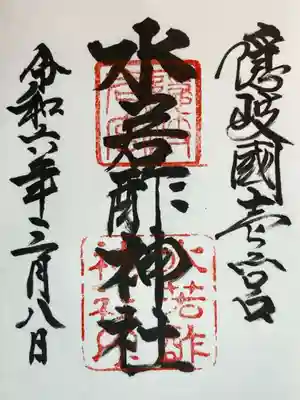 隠岐國壱宮
水若酢神社
令和六年三月八日
水若酢